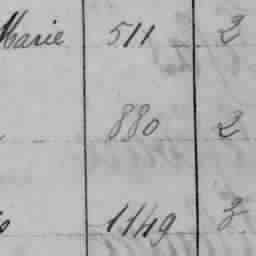 Marie 511 2
880 2
1149 3